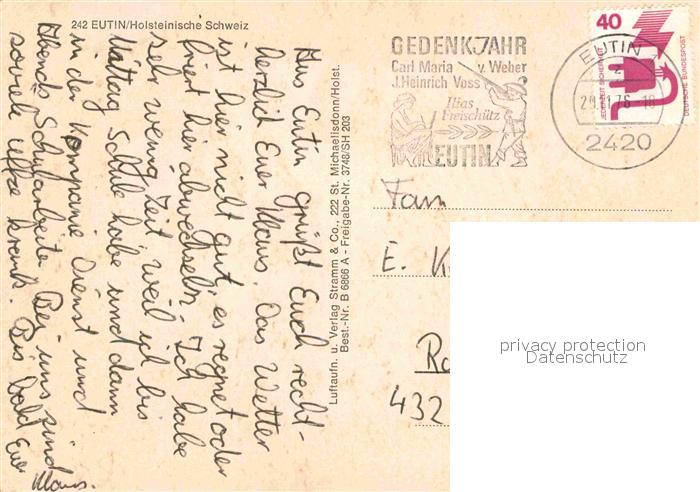 242 EUTIN/Holsteinische Schweiz
Aus Eutin grüßt Euch recht-
herzlich Euer Klaus. Das Wetter
ist hier nicht gut, es regnet oder
friert hier abwechseln. Ich habe
sehr wenig Zeit weil ich bis
Mittag Schule habe und dann
in der Kompanie Dienst und
Abends Schularbeiten. Bei uns sind
soviele krank. Bis bald Euer
Klaus.
Luftaufn. u. Verlag Stramm & Co., 222 St. Michaelisdonn/Holst.
Best.-Nr. B 6866 A - Freigabe-Nr. 3748/SH 203
GEDENKJAHR
Carl Maria v. Weber
J. Heinrich Voss
Ilias
Freischütz
EUTIN
EUTIN
2420
40
JEDERZEIT SICHERHEIT
DEUTSCHE BUNDESPOST
Fam
E. K
432
privacy protection
Datenschutz